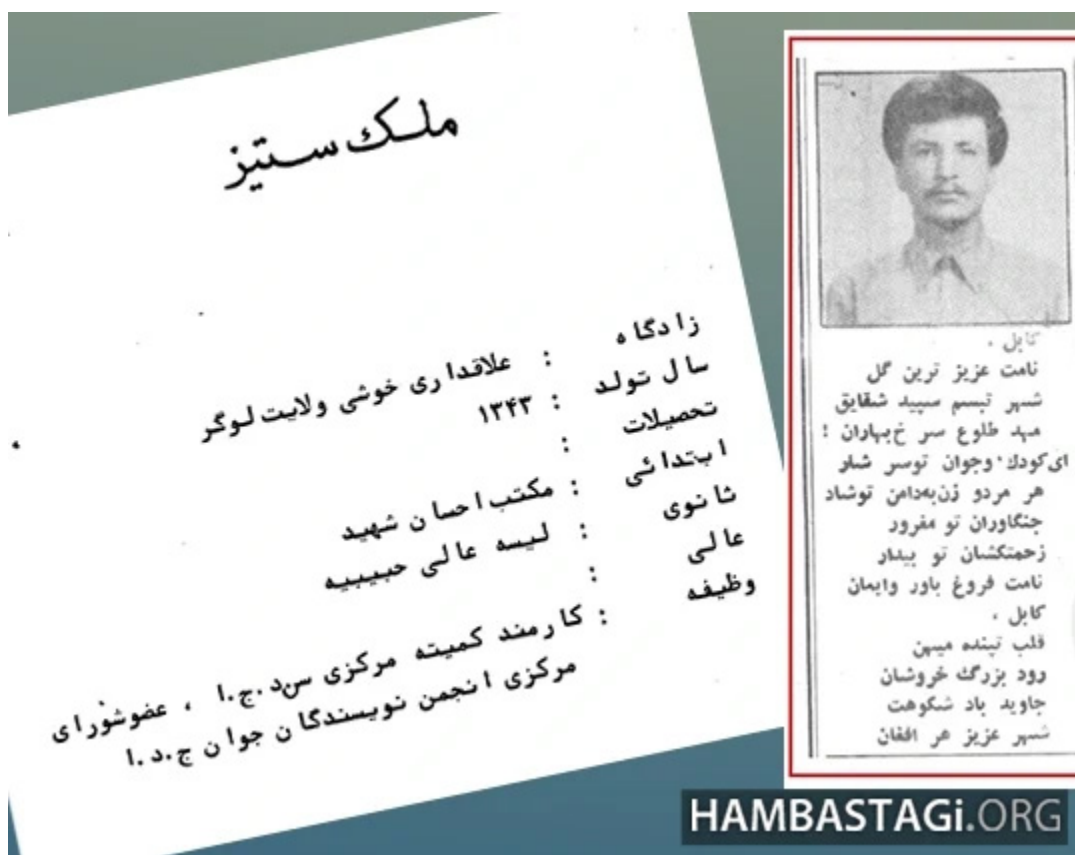 ملك ستيز
زادگاه : علاقداری خوشی ولایت لوگر
سال تولد : ۱۳۴۳
تحصیلات :
ابتدائی : مکتب احسان شهید
ثانوی : لیسه عالی حبیبیه
عالی :
وظیفه : کارمند کمیته مرکزی س.د.ج.ا ، عضو شورای
مرکزی انجمن نویسندگان جوان ج.د.ا.
کابل ،
نامت عزیز ترین گل
شهر تبسم سپید شقایق
مهد طلوع سر خ بهاران !
ای کودك وجوان تو سر شار
هر مردو زن به‌دامن توشاد
جنگاوران تو مغرور
زحمتکشان تو بیدار
نامت فروغ باور وایمان
کابل ،
قلب تپنده میهن
رود بزرگ خروشان
جاوید باد شکوهت
شهر عزیز هر افغان
HAMBASTAGi.ORG